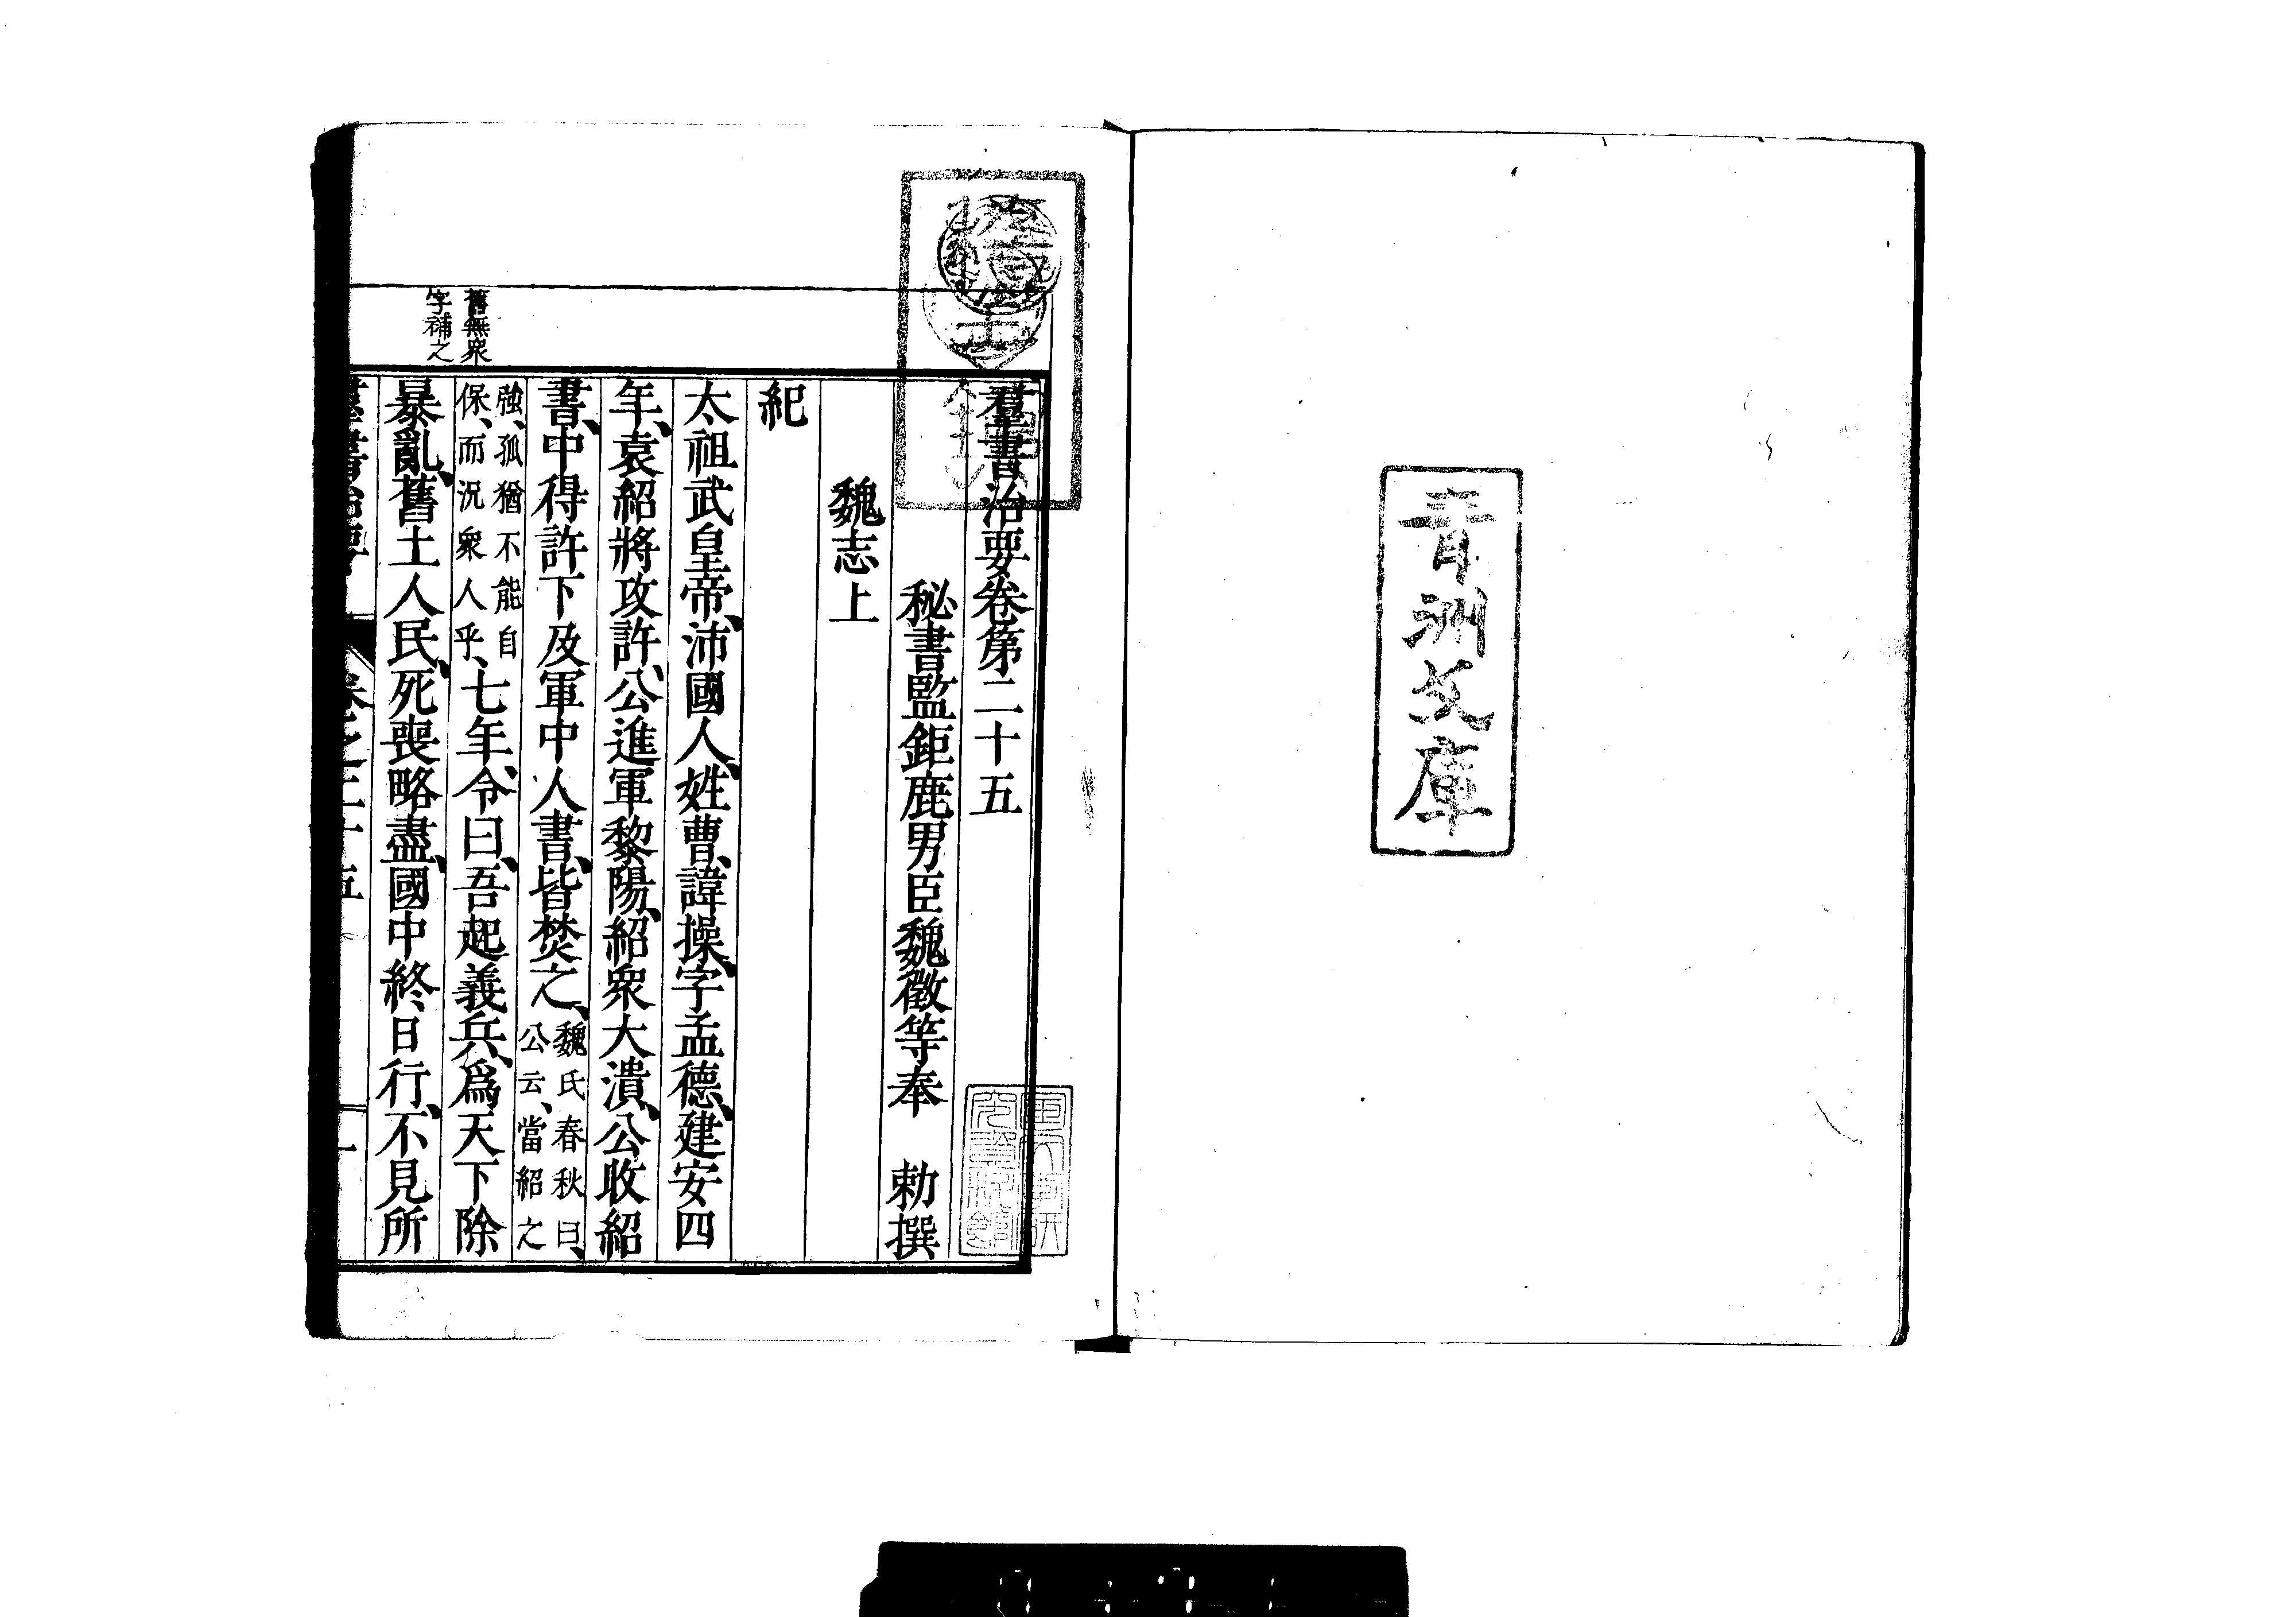 青洲文庫
羣書治要卷第二十五
秘書監鉅鹿男臣魏徵等奉　勅撰
魏志上
紀
太祖武皇帝、沛國人、姓曹、諱操、字孟德、建安四
年、袁紹將攻許、公進軍黎陽、紹衆大潰、公收紹
書、中得許下及軍中人書、皆焚之、魏氏春秋曰、公云、當紹之
強、孤猶不能自保、而況衆人乎、七年、令曰、吾起義兵、爲天下除
暴亂、舊土人民、死喪略盡、國中終日行、不見所
舊無衆
字補之